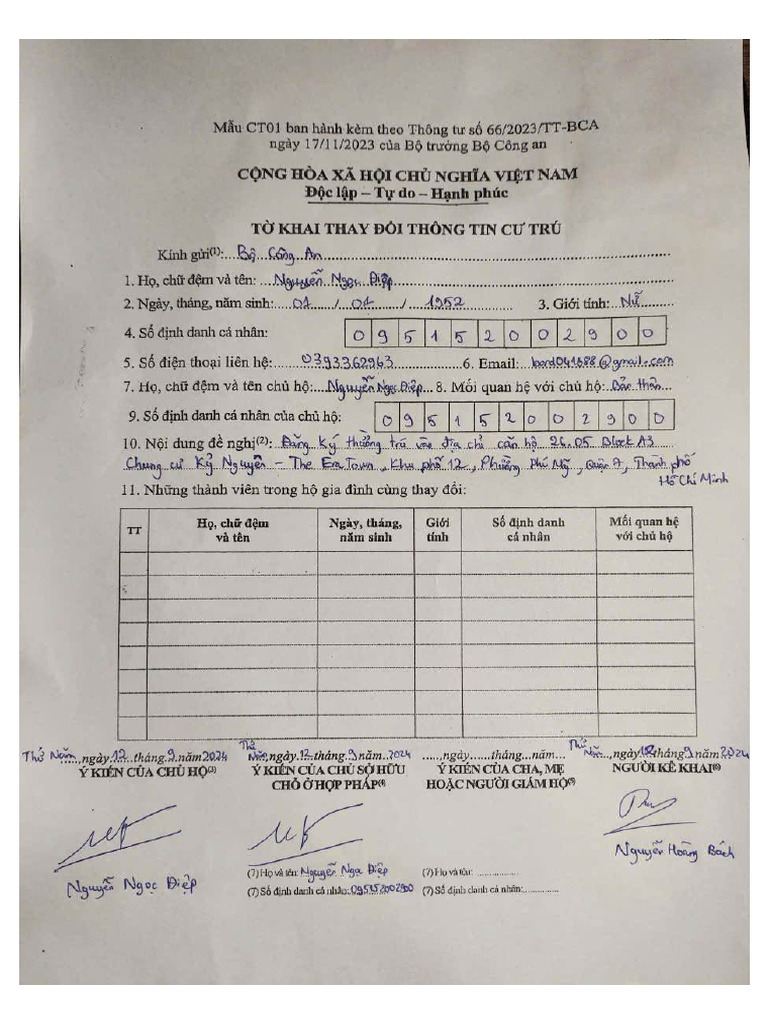 Mẫu CT01 ban hành kèm theo Thông tư số 66/2023/TT-BCA
ngày 17/11/2023 của Bộ trưởng Bộ Công an
CỘNG HÒA XÃ HỘI CHỦ NGHĨA VIỆT NAM
Độc lập – Tự do – Hạnh phúc
TỜ KHAI THAY ĐỔI THÔNG TIN CƯ TRÚ
Kính gửi(1):...Bộ Công An
1. Họ, chữ đệm và tên: Nguyễn Ngọc Điệp
2. Ngày, tháng, năm sinh: 01 / 01 / 1952 3. Giới tính: Nữ
4. Số định danh cá nhân: 095152002900
5. Số điện thoại liên hệ: 0393362963 6. Email: bond041688@gmail.com
7. Họ, chữ đệm và tên chủ hộ: Nguyễn Ngọc Điệp 8. Mối quan hệ với chủ hộ: Bản thân
9. Số định danh cá nhân của chủ hộ: 095152002900
10. Nội dung đề nghị(2): Đăng Ký thường trú vào địa chỉ căn hộ 24.05 Block A3
Chung cư Kỷ Nguyên - The Era Town, Khu phố 12, Phường Phú Mỹ, Quận 7, Thành phố
Hồ Chí Minh
11. Những thành viên trong hộ gia đình cùng thay đổi:
TT Họ, chữ đệm và tên Ngày, tháng, năm sinh Giới tính Số định danh cá nhân Mối quan hệ với chủ hộ
Thứ Năm, ngày 12 tháng 9 năm 2024 Thứ Năm, ngày 12 tháng 9 năm 2024 ......,ngày......tháng...năm... Thứ Năm, ngày 12 tháng 9 năm 2024
Ý KIẾN CỦA CHỦ HỘ(3) Ý KIẾN CỦA CHỦ SỞ HỮU CHỖ Ở HỢP PHÁP(4) Ý KIẾN CỦA CHA, MẸ HOẶC NGƯỜI GIÁM HỘ(5) NGƯỜI KÊ KHAI(6)
Nguyễn Hoàng Bách
Nguyễn Ngọc Điệp
(7) Họ và tên: Nguyễn Ngọc Điệp (7) Họ và tên: ................
(7) Số định danh cá nhân: 095152002900 (7) Số định danh cá nhân:..............